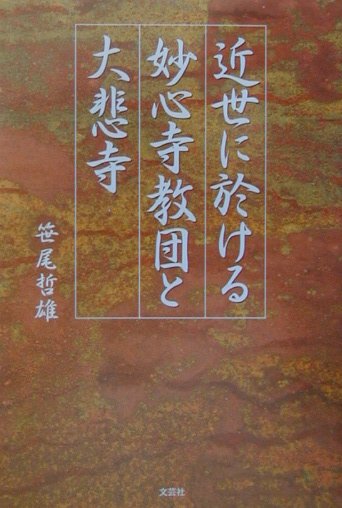 近世に於ける
妙心寺教団と
大悲寺
笹尾哲雄
文芸社